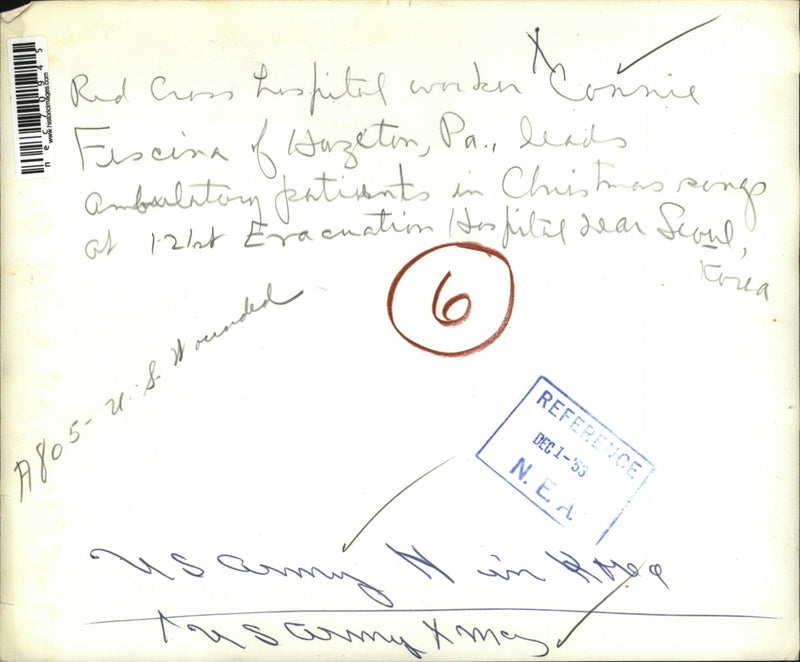 Red Cross hospital worker X Connie
Fiscina of Hazleton, Pa., leads
ambulatory patients in Christmas songs
at 121st Evacuation Hospital near Seoul,
Korea
6
A805- U.S. Wounded
REFERENCE
DEC 1-'53
N.E.A.
US Army W in Korea
US Army Xmas
www.historicimages.com